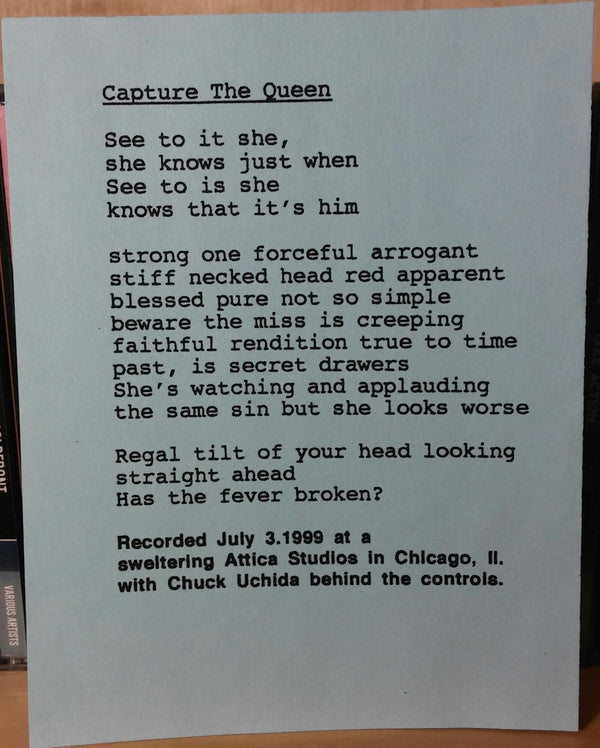 Capture The Queen
See to it she,
she knows just when
See to is she
knows that it's him
strong one forceful arrogant
stiff necked head red apparent
blessed pure not so simple
beware the miss is creeping
faithful rendition true to time
past, is secret drawers
She's watching and applauding
the same sin but she looks worse
Regal tilt of your head looking
straight ahead
Has the fever broken?
Recorded July 3.1999 at a
sweltering Attica Studios in Chicago, Il.
with Chuck Uchida behind the controls.
VARIOUS ARTISTS